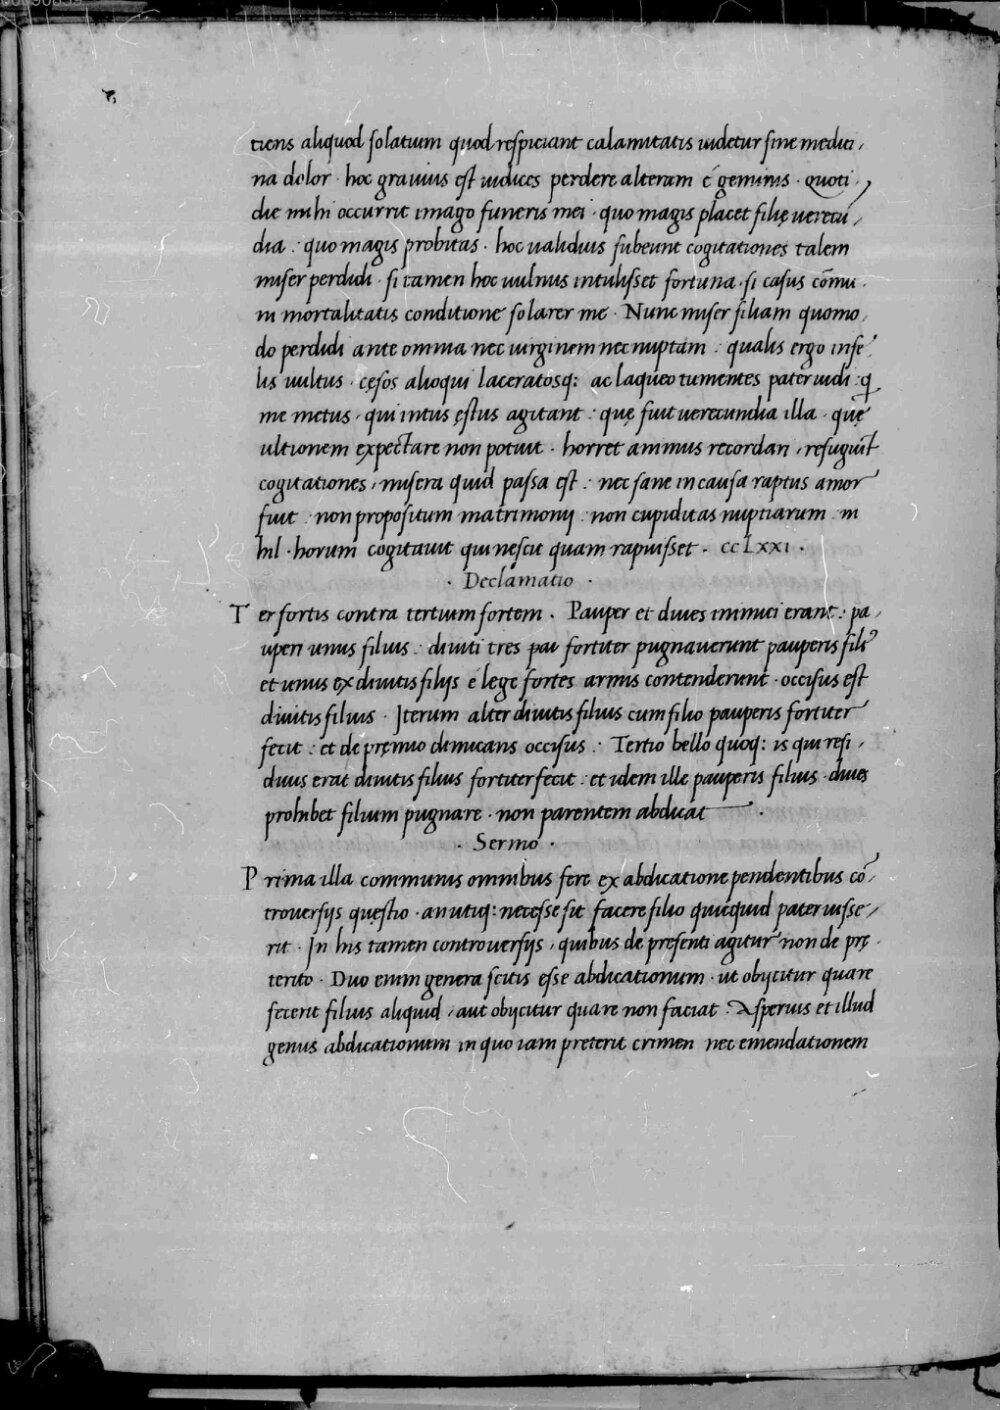 tiens aliquod solatium quod respiciant calamitatis uidetur sine medici,
na dolor · hoc grauius est iudices perdere alteram é geminis · quoti,
die mihi occurrit imago funeris mei · quo magis placet filię uerecū,
dia : quo magis probitas · hoc ualidius subeunt cogitationes talem
miser perdidi · si tamen hoc uulnus intulisset fortuna · si casus cōmu,
ni mortalitatis conditione solarer me · Nunc miser filiam quomo,
do perdidi ante omnia nec uirginem nec nuptam : qualis ergo infe,
lis uultus · cęsos alioqui laceratosq: ac laqueo tumentes pater uidi : q
me metus, qui intus ęstus agitant : quę fuit uerecundia illa · quę
ultionem expectare non potuit · horret animus recordari, refugiūt
cogitationes, misera quid passa est : nec sane in causa raptus amor
fuit : non propositum matrimonij : non cupiditas nuptiarum ni
hil · horum cogitauit qui nescit quam rapuisset · ccLxxi ·
· Declamatio ·
Ter fortis contra tertium fortem · Pauper et diues inimici erant : pa,
uperi unus filius : diuiti tres pai fortiter pugnauerunt pauperis fili
et unus ex diuitis filijs é lege fortes armis contenderunt · occisus est
diuitis filius · Iterum alter diuitis filius cum filio pauperis fortiter
fecit : et de pręmio dimicans occisus : Tertio bello quoq: is qui resi,
duus erat diuitis filius fortiter fecit : et idem ille pauperis filius · diues
prohibet filium pugnare · non parentem abdicat ·
· Sermo ·
Prima illa communis omnibus fere ex abdicatione pendentibus cō,
trouersijs questio · an utiq: necesse sit facere filio quicquid pater iusse,
rit · In his tamen controuersijs, quibus de presenti agitur non de prę
terito · Duo enim genera scitis esse abdicationum · ut obijcitur quare
fecerit filius aliquid, aut obijcitur quare non faciat : Asperius et illud
genus abdicationum in quo iam preterit crimen nec emendationem